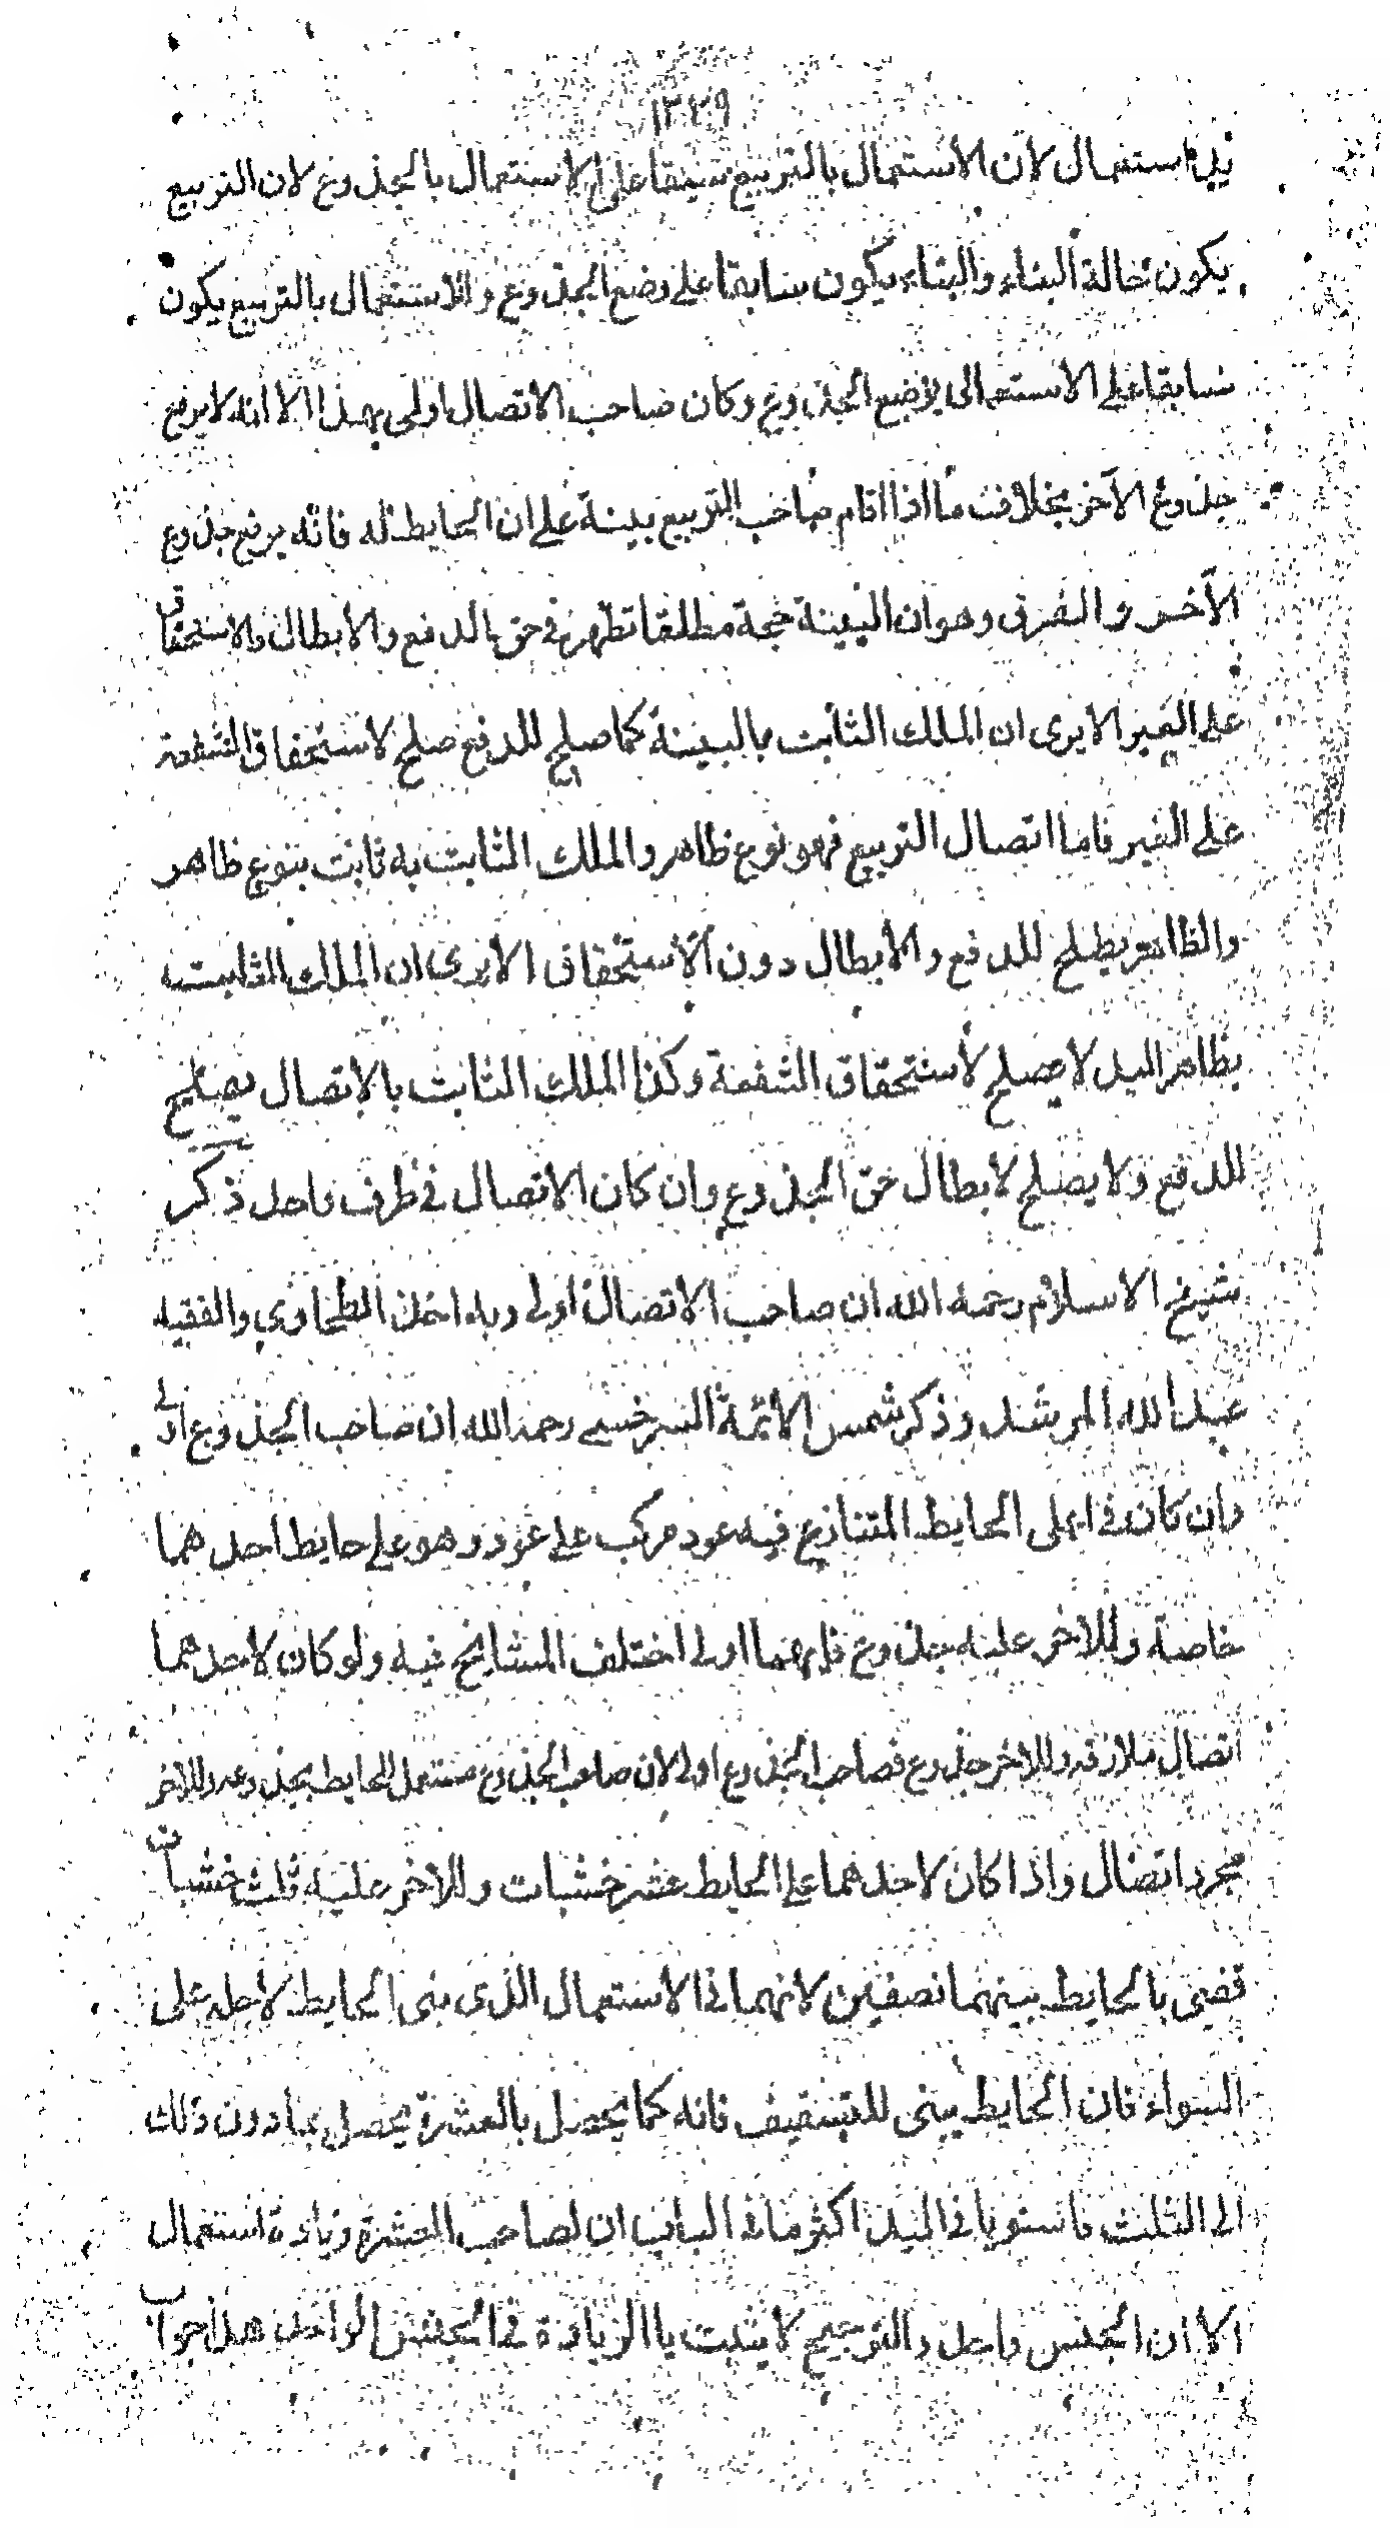 ١٣٢٩
يد استعمال لان الاستعمال بالتربيع سبقا على الاستعمال بالجذوع لان التربيع
يكون حالة البناء والبناء يكون سابقا على وضع الجذوع والاستعمال بالتربيع يكون
سابقا على الاستعمال بوضع الجذوع وكان صاحب الاتصال اولى بهذا الا انه لا يرفع
جذوع الآخر بخلاف ما اذا اقام صاحب التربيع بينة على ان الحايط له فانه يرفع جذوع
الآخر والفرق وهو ان البينة حجة مطلقا تظهر في حق بالدفع والابطال والاستحقاق
على الغير الا يرى ان الملك الثابت بالبينة كما صلح للدفع صلح لاستحقاق الشفعة
على الغير فاما اتصال التربيع فهو نوع ظاهر والملك الثابت به ثابت بنوع ظاهر
والظاهر يصلح للدفع والابطال دون الاستحقاق الا يرى ان الملك الثابت
بظاهر اليد لا يصلح لاستحقاق الشفعة وكذا الملك الثابت بالاتصال يصلح
للدفع ولا يصلح لابطال حق الجذوع وان كان الاتصال في طرف واحد ذكر
شيخ الاسلام رحمه الله ان صاحب الاتصال اولى وبه اخذ الطحاوي والفقيه
عبد الله المرشد وذكر شمس الائمة السرخسي رحمه الله ان صاحب الجذوع اولى
وان كان في اعلى الحايط المتنازع فيه عود مركب على عود وهو على حايط احدهما
خاصة وللاخر عليه جذوع فايهما اولى اختلف المشايخ فيه ولو كان لاحدهما
اتصال ملازقه وللاخر جذوع فصاحب الجذوع اولى لان صاحب الجذوع مستعمل للحايط بجذوعه وللاخر
مجرد اتصال واذا كان لاحدهما على الحايط عشر خشبات وللاخر عليه ثلث خشبات
قضى بالحايط بينهما نصفين لانهما في الاستعمال الذي بنى الحايط لاجله على
السواء فان الحايط يبنى للتسقيف فانه كما يحصل بالعشرة يحصل بما دون ذلك
الى الثلث فاستويا في اليد اكثر ما في الباب ان لصاحب العشرة زيادة استعمال
الا ان الجنس واحد والترجيح لا يثبت يا الزيادة في الجنس الواحد هذا جواب